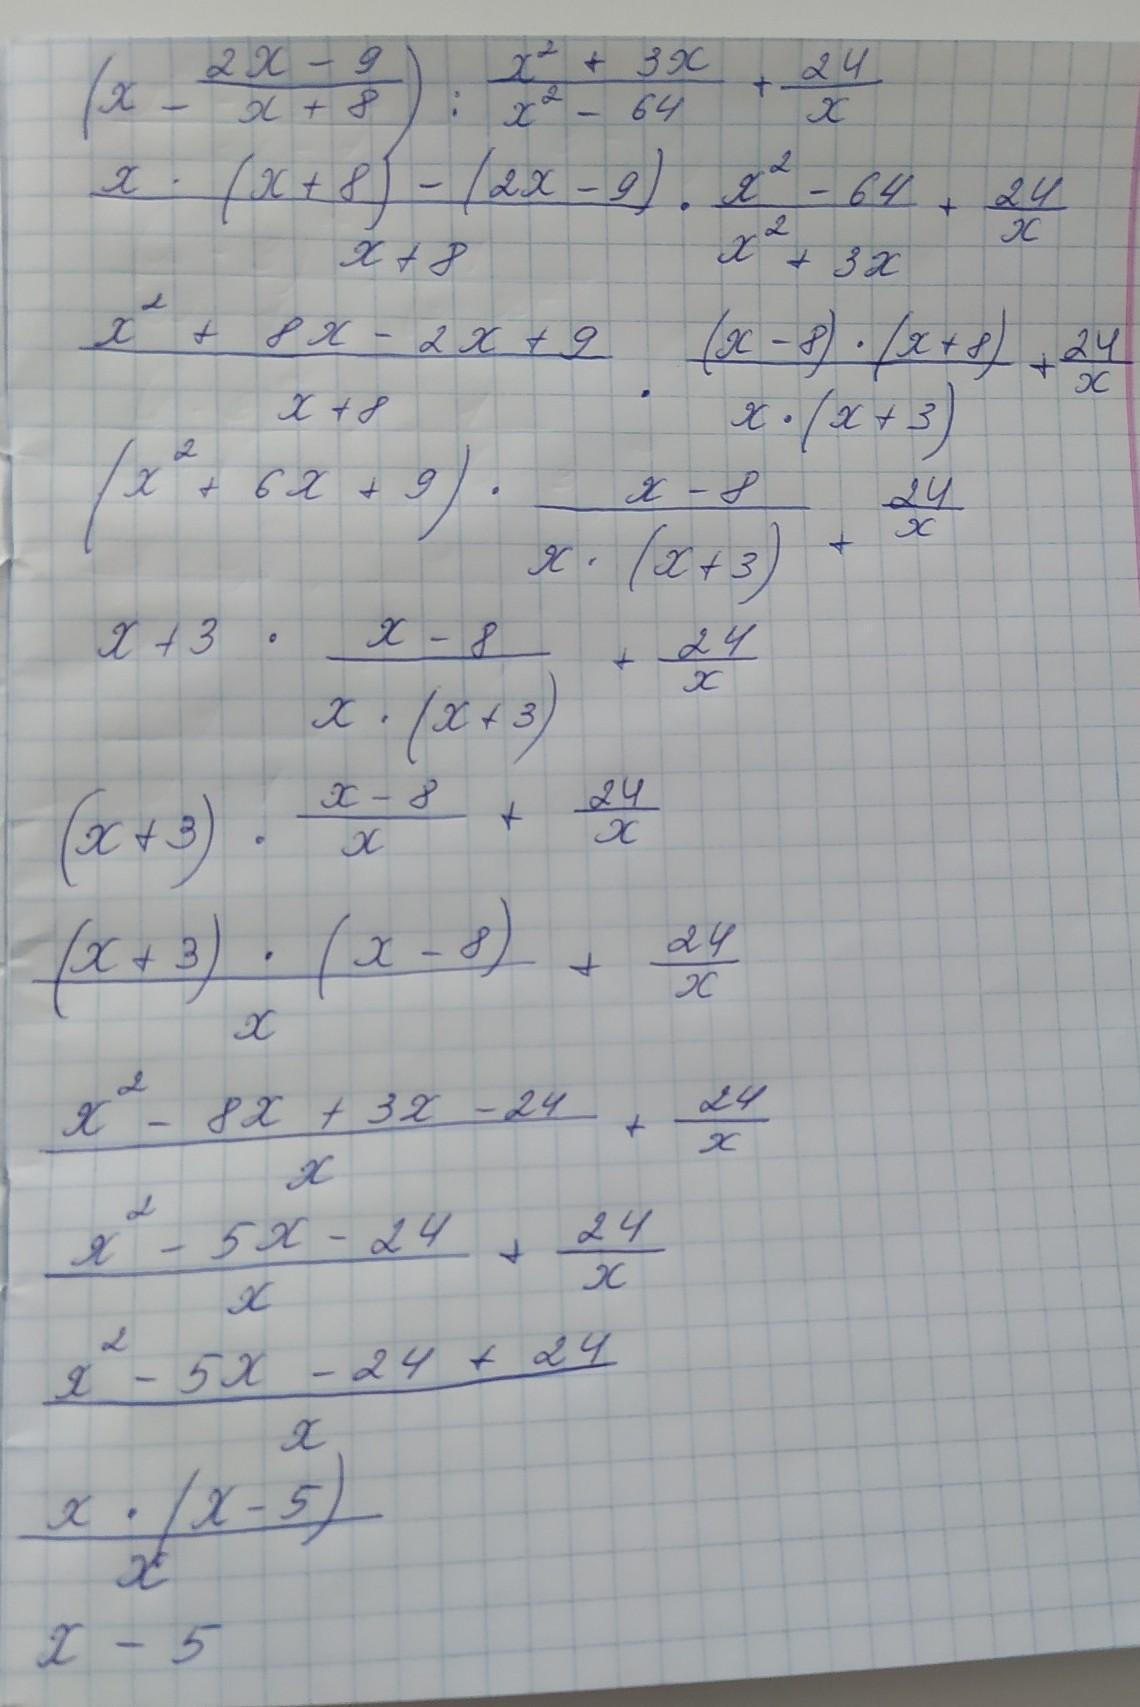 (x - (2x - 9)/(x + 8)) : (x² + 3x)/(x² - 64) + 24/x
(x · (x + 8) - (2x - 9))/(x + 8) · (x² - 64)/(x² + 3x) + 24/x
(x² + 8x - 2x + 9)/(x + 8) · ((x - 8) · (x + 8))/(x · (x + 3)) + 24/x
(x² + 6x + 9) · (x - 8)/(x · (x + 3)) + 24/x
x + 3 · (x - 8)/(x · (x + 3)) + 24/x
(x + 3) · (x - 8)/x + 24/x
((x + 3) · (x - 8))/x + 24/x
(x² - 8x + 3x - 24)/x + 24/x
(x² - 5x - 24)/x + 24/x
(x² - 5x - 24 + 24)/x
(x · (x - 5))/x
x - 5